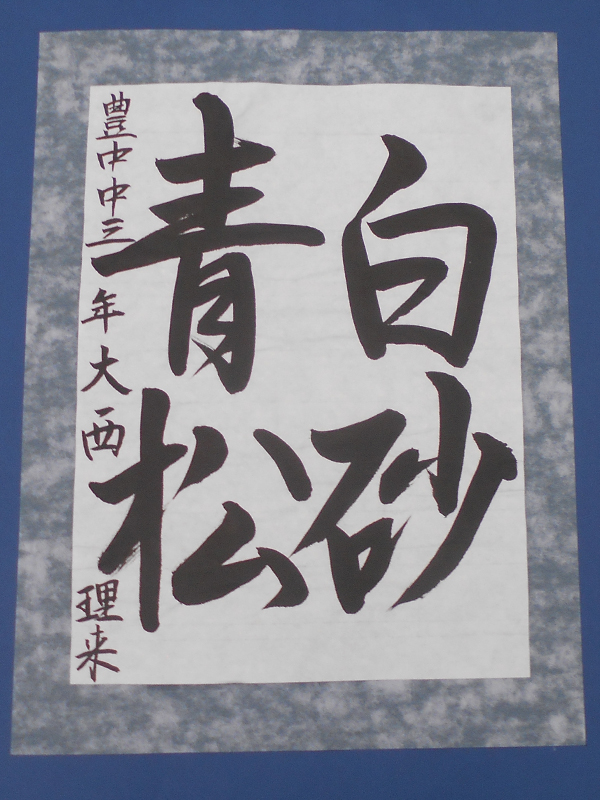 白砂
青松
豊中中三年大西理来